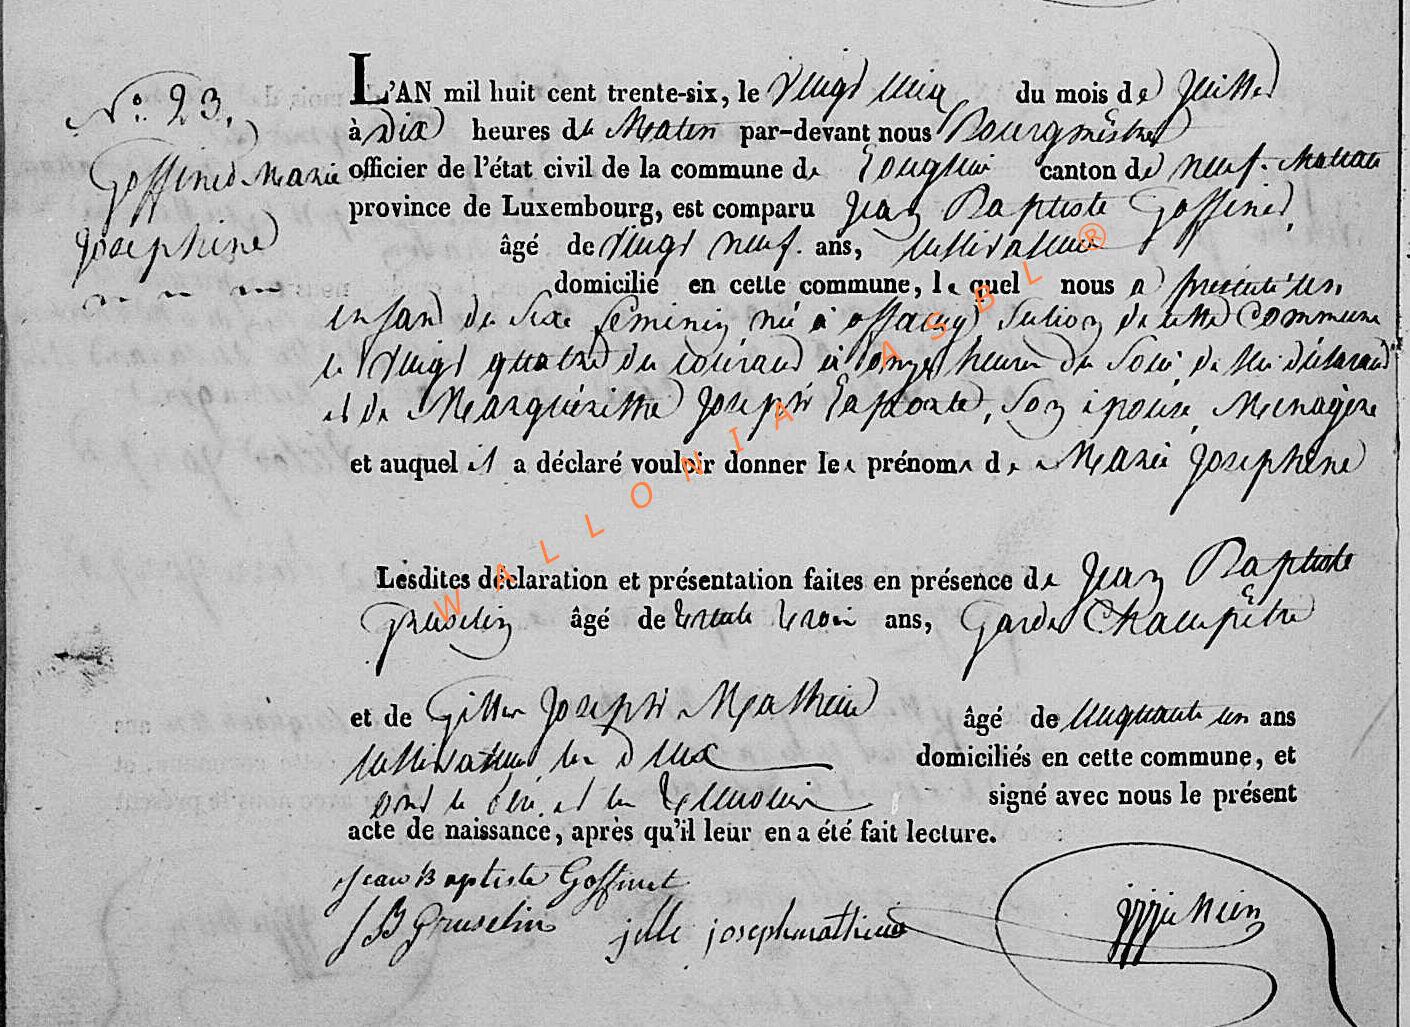 N.° 23.
Goffinet Marie
Josephine
L'AN mil huit cent trente-six, le Vingt cinq du mois de Juillet
à Dix heures du Matin par-devant nous Bourgmêstre
officier de l'état civil de la commune de canton de neuf-chateau
province de Luxembourg, est comparu Jean Baptiste Goffinet,
âgé de Vingt neuf ans, Cultivateur
domicilié en cette commune, lequel nous a présenté un
enfant du sexe féminin né à offaing section de cette Commune
le Vingt quatre du courant à onze heures du soir, de lui déclarant
et de Marguéritte Joseph Laporte, son épouse, Menagère
et auquel il a déclaré vouloir donner les prénoms de Marie Josephine
Lesdites déclaration et présentation faites en présence de Jean Baptiste
Gruselin âgé de trente trois ans, Garde Champêtre
et de Gilles Joseph Mathieu âgé de cinquante un ans
cultivateur, les deux domiciliés en cette commune, et
ont le père et les témoins signé avec nous le présent
acte de naissance, après qu'il leur en a été fait lecture.
Jean Baptiste Goffinet
JB Gruselin jille joseph mathieu
WALLONIA ASBL ®